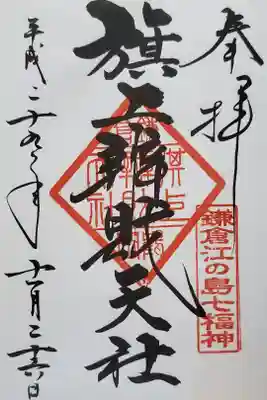 奉拝
鎌倉江の島七福神
旗上辨財天社
平成二十九年十一月二十六日